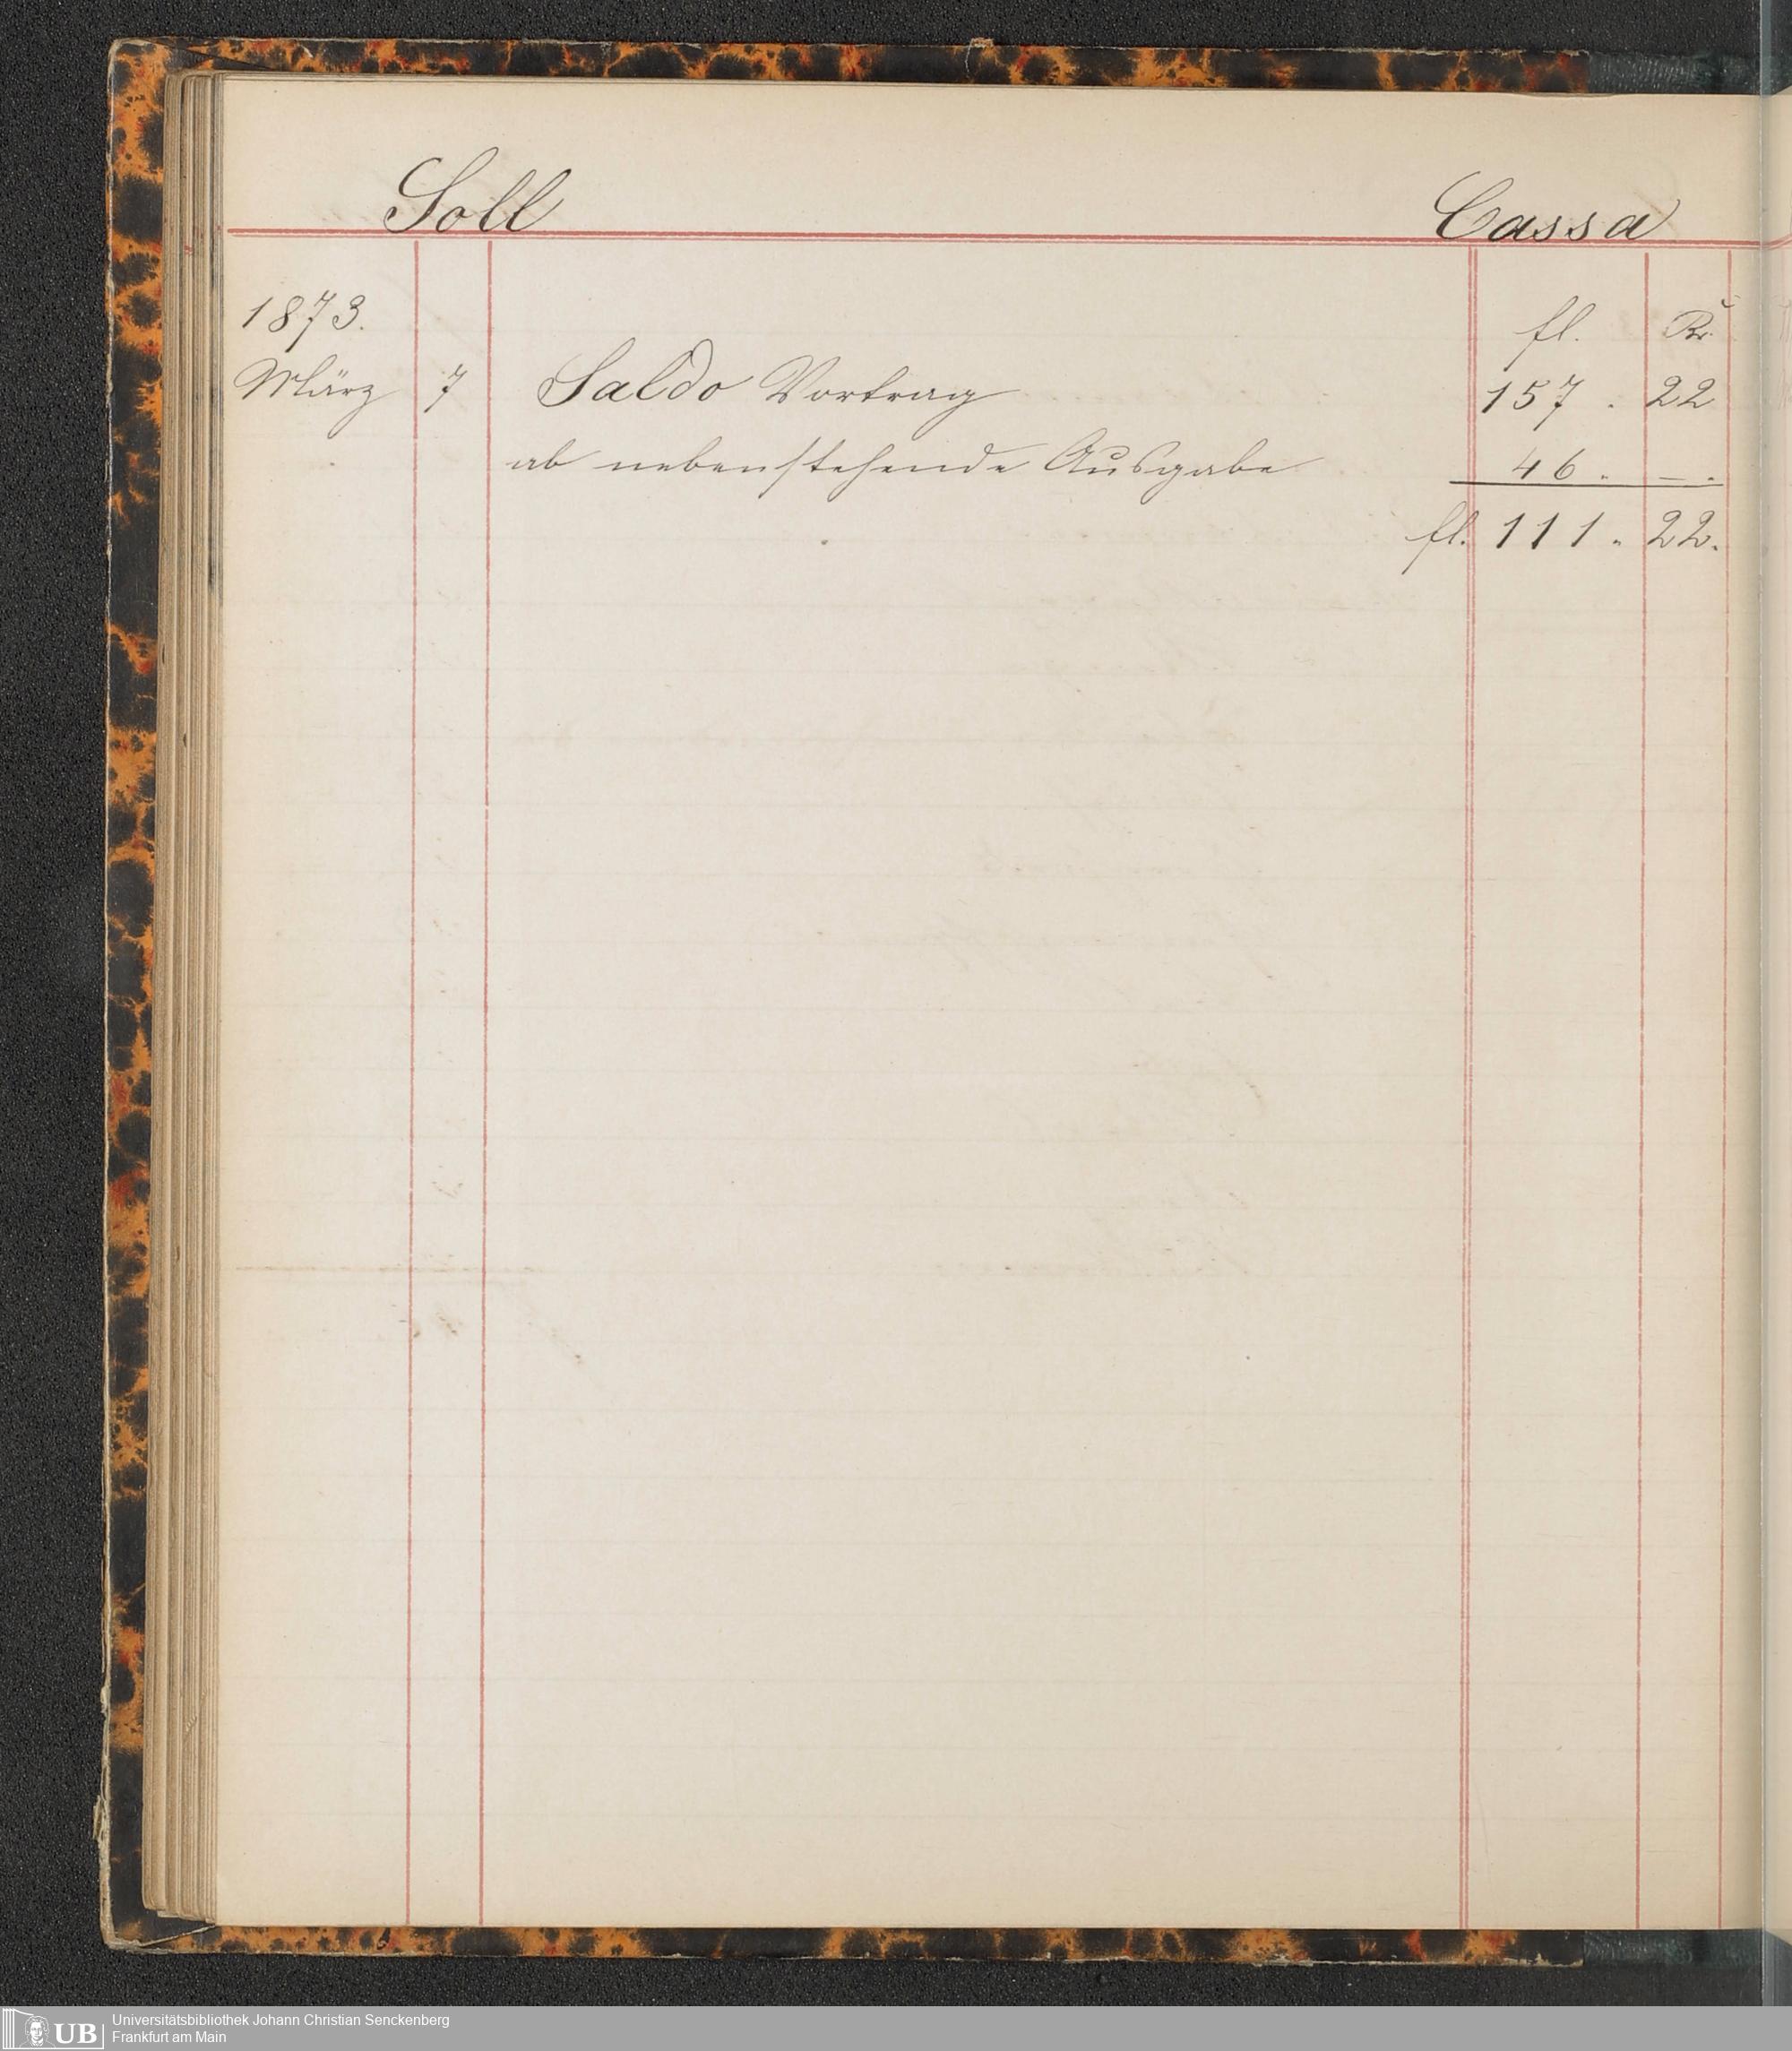 Soll Cassa
1873. fl. Kr.
März 7 Saldo Vortrag 157 . 22
ab nebenstehende Ausgabe 46 . — .
fl. 111 . 22.
UB Universitätsbibliothek Johann Christian Senckenberg
Frankfurt am Main